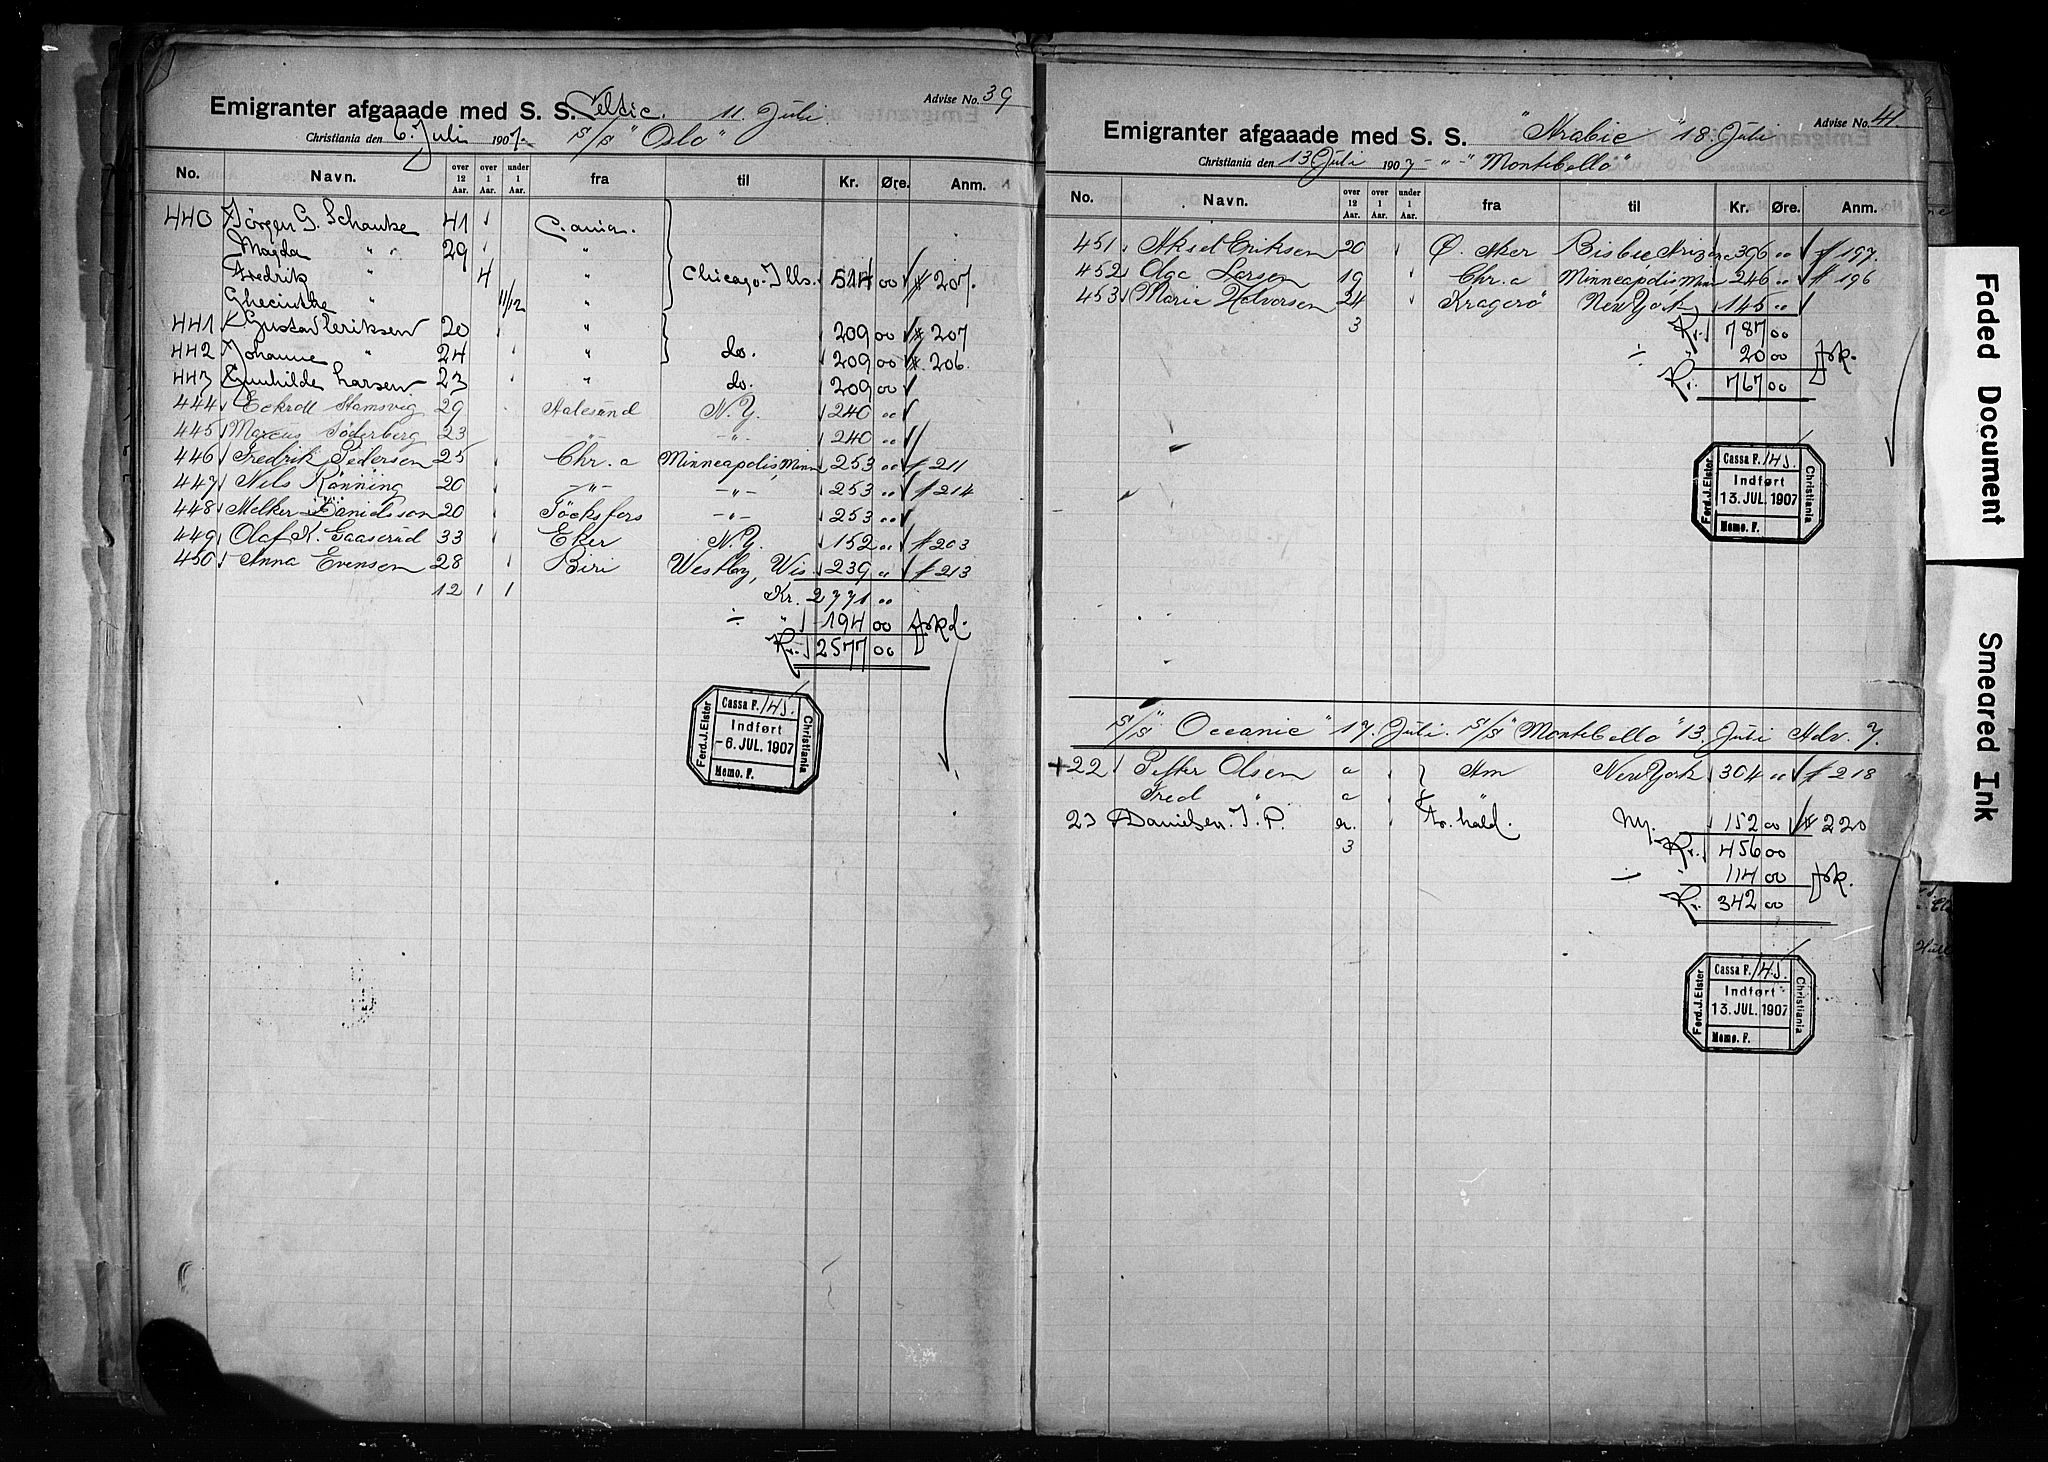 Emigranter afgaaade med S. S. Celtic. 11. Juli Advise No. 39
Christiania den 6. Juli 1907. S/S "Oslo"
No. Navn. over 12 Aar. over 1 Aar. under 1 Aar. fra til Kr. Øre. Anm.
440 Jörgen G. Schanke 41 C.ania.
Magda " 29 "
Fredrik 4 " Chicago. Ills. 514 00 # 207.
" 11/12 "
441 Gustav Eriksen 20 " 209 00 # 207
442 Johanne " 24 " do. 209 00 # 206.
443 Gunhilde Larsen 23 " do. 209 00
444 Eckroll Stamsvig 29 Aalesund N.Y. 240 "
445 Marcus Söderberg 23 -"- -"- 240 "
446 Fredrik Pedersen 25 Chr.a Minneapolis, Minn 253 " # 211
447 Nils Rönning 20 -"- -"- 253 " # 214
448 Melker Danielsson 20 Töcksfors -"- 253 "
449 Olaf K. Gaaserud 33 Eker N.Y. 152 " # 203
450 Anna Evensen 28 Biri Westby, Wis. 239 " # 213
12 1 1 Kr. 2771 "
÷ " 194 00
Kr. 2577 00
Ferd. J. Elster
Cassa F. 145.
Indført
- 6. JUL. 1907
Memo. F.
Christiania
Emigranter afgaaade med S. S. "Arabic" 18. Juli Advise No. 41.
Christiania den 13 Juli 1907 - " - "Montebello"
No. Navn. over 12 Aar. over 1 Aar. under 1 Aar. fra til Kr. Øre. Anm.
451 Aksel Eriksen 20 Ø. Aker Bisbee Arizona 396 " # 197.
452 Olga Larsen 19 Chr.a Minneapolis Minn 246 " # 196
453 Marie Halvorsen 24 Kragerö New York 145 "
3 Kr. 787 00
÷ " 20 00
Kr. 767 00
Ferd. J. Elster
Cassa F. 145.
Indført
13. JUL. 1907
Memo. F.
Christiania
S/S "Oceanic" 17. Juli. S/S "Montebello" 13. Juli Adv. 7.
+22 Petter Olsen a Am New York 304 " # 218
Fred " a "
23 Danielsen. J. P. a. Fr.hald. Ny. 152 00 # 220
3 Kr. 456 00
÷ 114 00
Kr. 342 00
Ferd. J. Elster
Cassa F. 145.
Indført
13. JUL. 1907
Memo. F.
Christiania
Faded Document
Smeared Ink